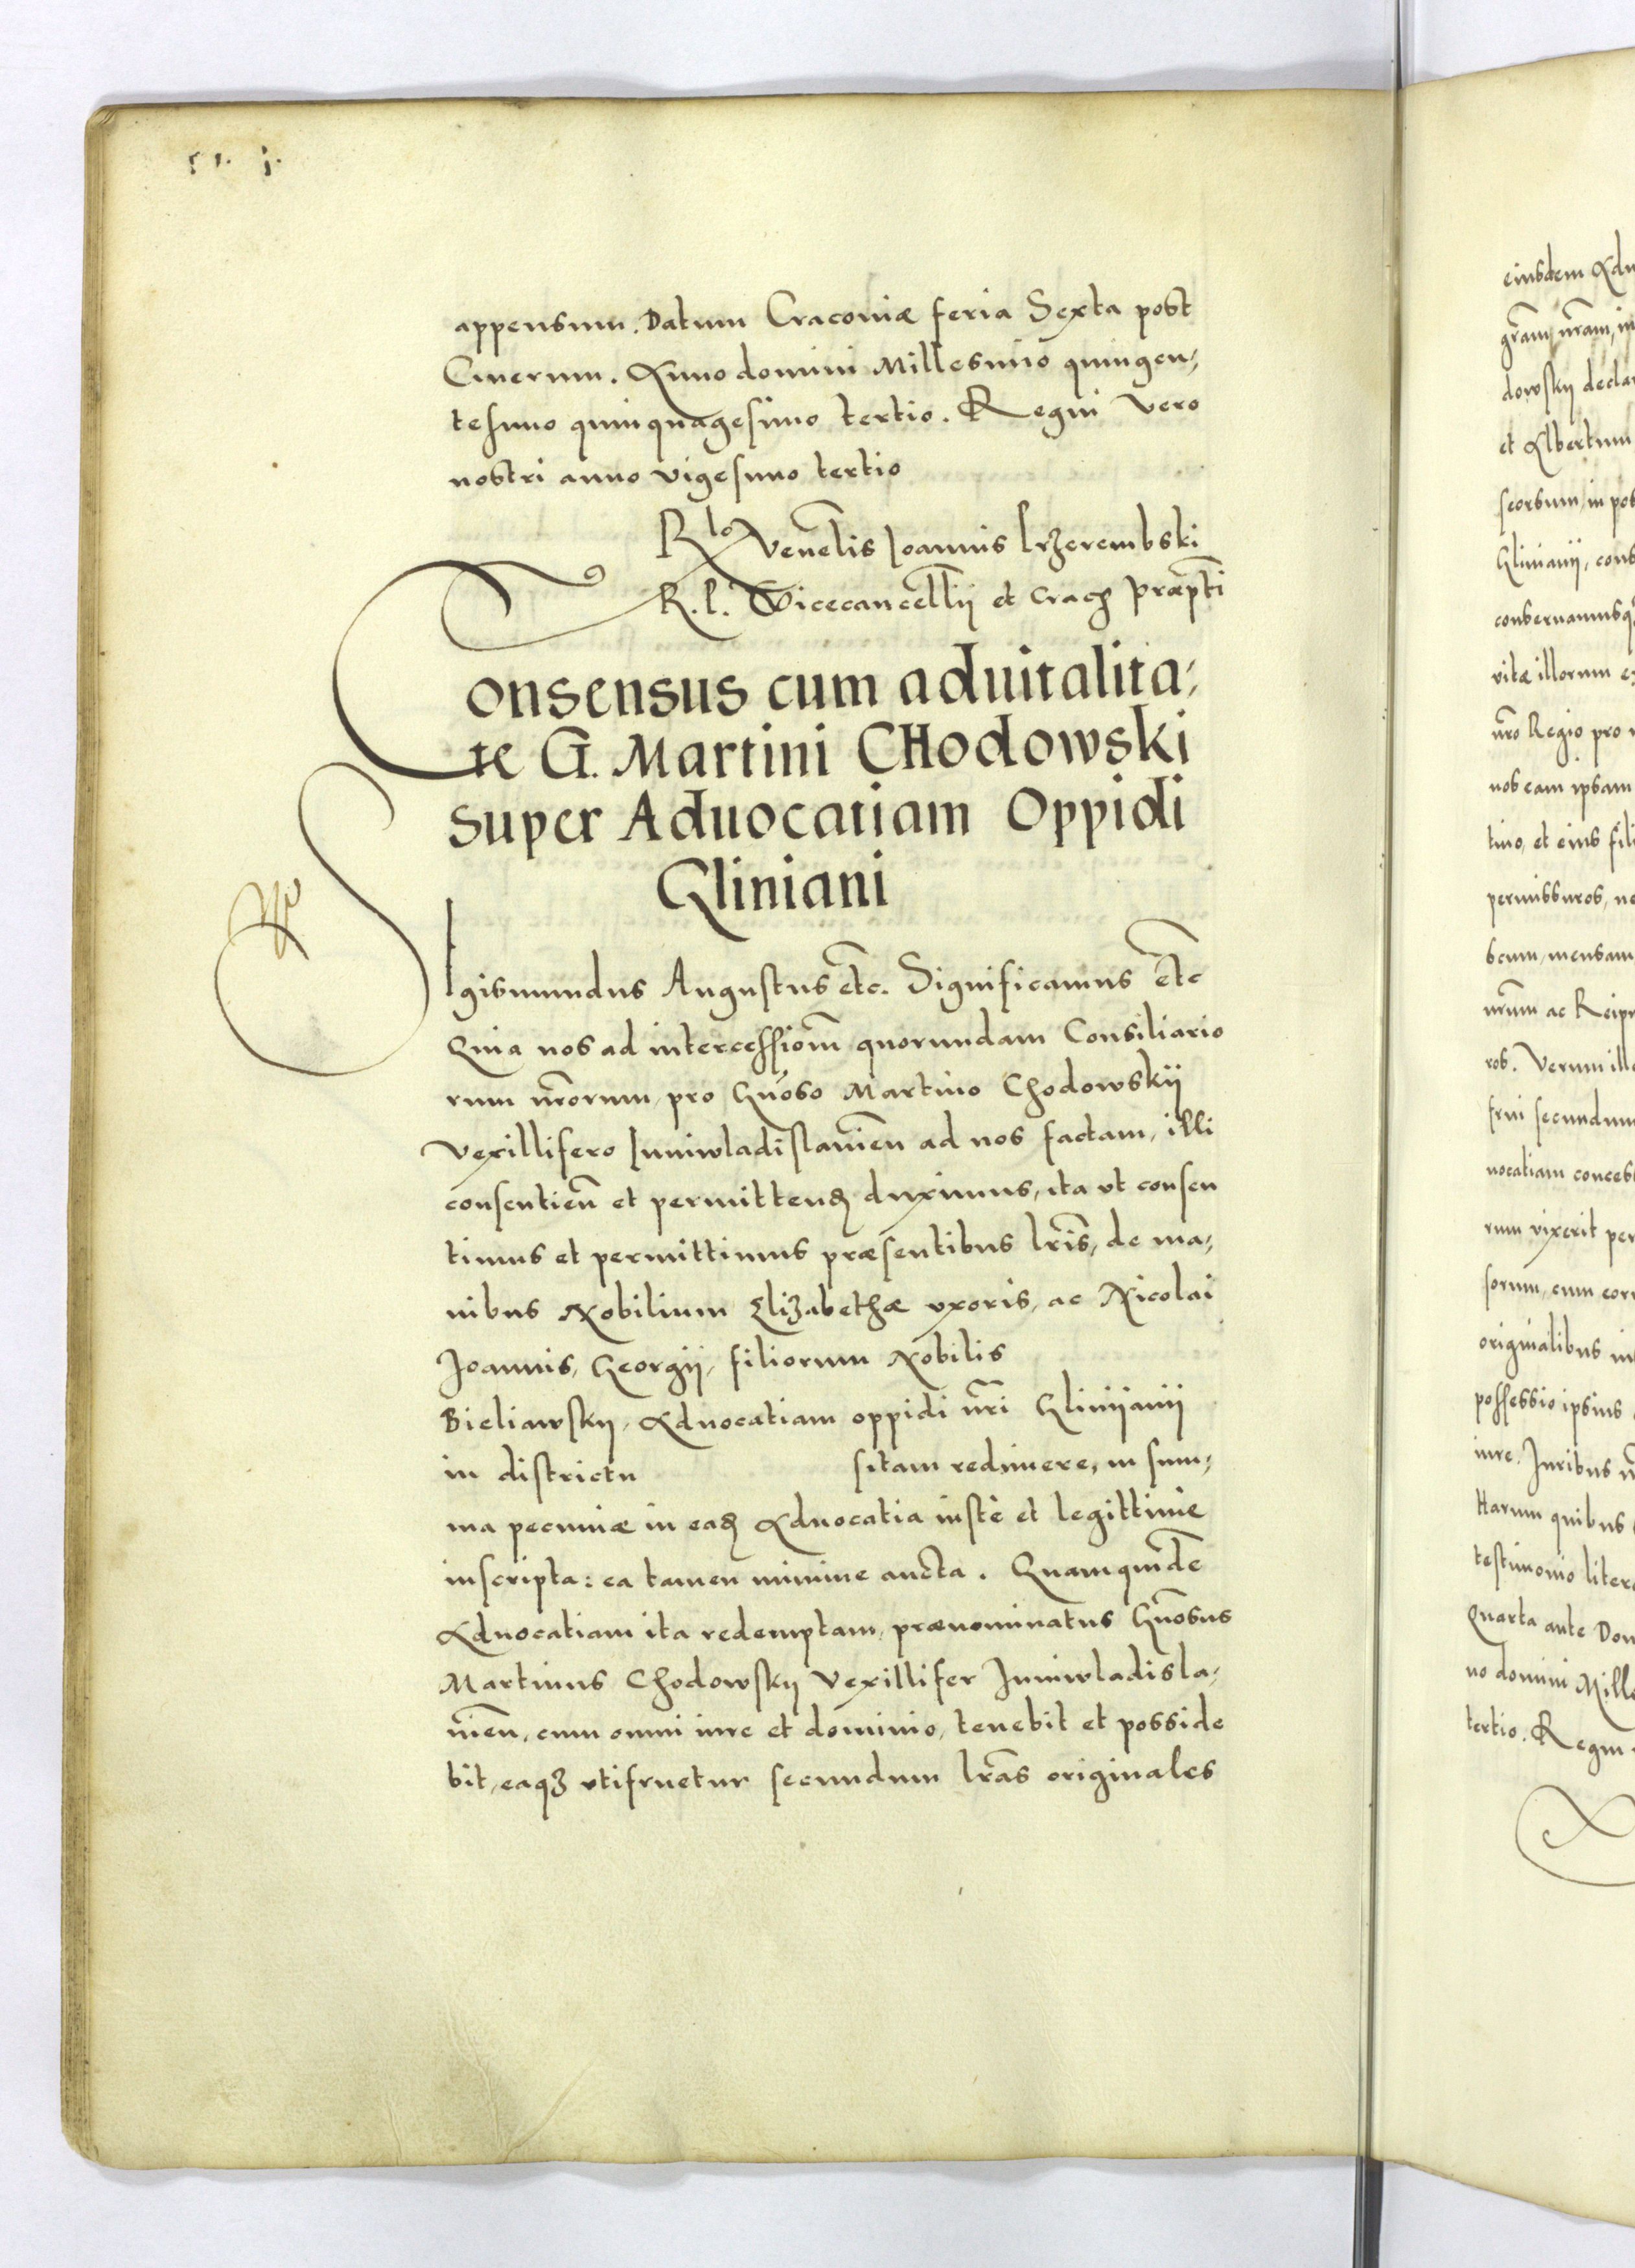 appensum. Datum Cracoviæ feria Sexta post
Cinerum. Anno domini Millesimo quingen,
tesimo quinquagesimo tertio. Regni Vero
nostri anno vigesimo tertio
Rlo Venelis Joannis Przerembski
R. P. Vicecancellij et Crac Præpti
Consensus cum aduitalita,
te G. Martini CHodowski
super Aduocatiam Oppidi
Gliniani
SIgismundus Augustus etc. Significamus etc
Quia nos ad intercessiom quorundam Consiliario
rum nrorum, pro Gnoso Martino Chodowskij
Vexillifero Juniwladislauien ad nos factam, illi
consentien et permittend duximus, ita vt consen
timus et permittimus præsentibus lris, de ma,
nibus Nobilium Elizabethæ vxoris, ac Nicolai
Joannis, Georgij, filiorum Nobilis
Bieliawskij, Aduocatiam oppidi nri Glinijanij
in districtu sitam redimere, in sum,
ma pecuniæ in ead Aduocatia iustè et legittimè
inscripta: ea tamen minime aucta. Quamquidē
Aduocatiam ita redemptam, prænominatus Gnosus
Martinus Chodowskij Vexillifer Juniwladisla,
uien, cum omni iure et dominio, tenebit et posside
bit, eaqz vtifruetur secundum lras originales
eiusdem Adu
gram nram, in
dowskij decla
et Albertum
seorsum in pos
Glinianij, cons
conseruamusq
vitæ illorum e
nro Regio pro
nos eam ipsam
tino, et eius fili
permissuros, ne
secum, mensam
nrum ac Reip
ros. Verum ill
frui secundum
uocatiam conces
rum vixerit per
sorum, cum eor
originalibus in
possessio ipsius
iure. Juribus n
Harum quibus
testimonio liter
Quarta ante Dom
no domini Mill
tertio. Regni